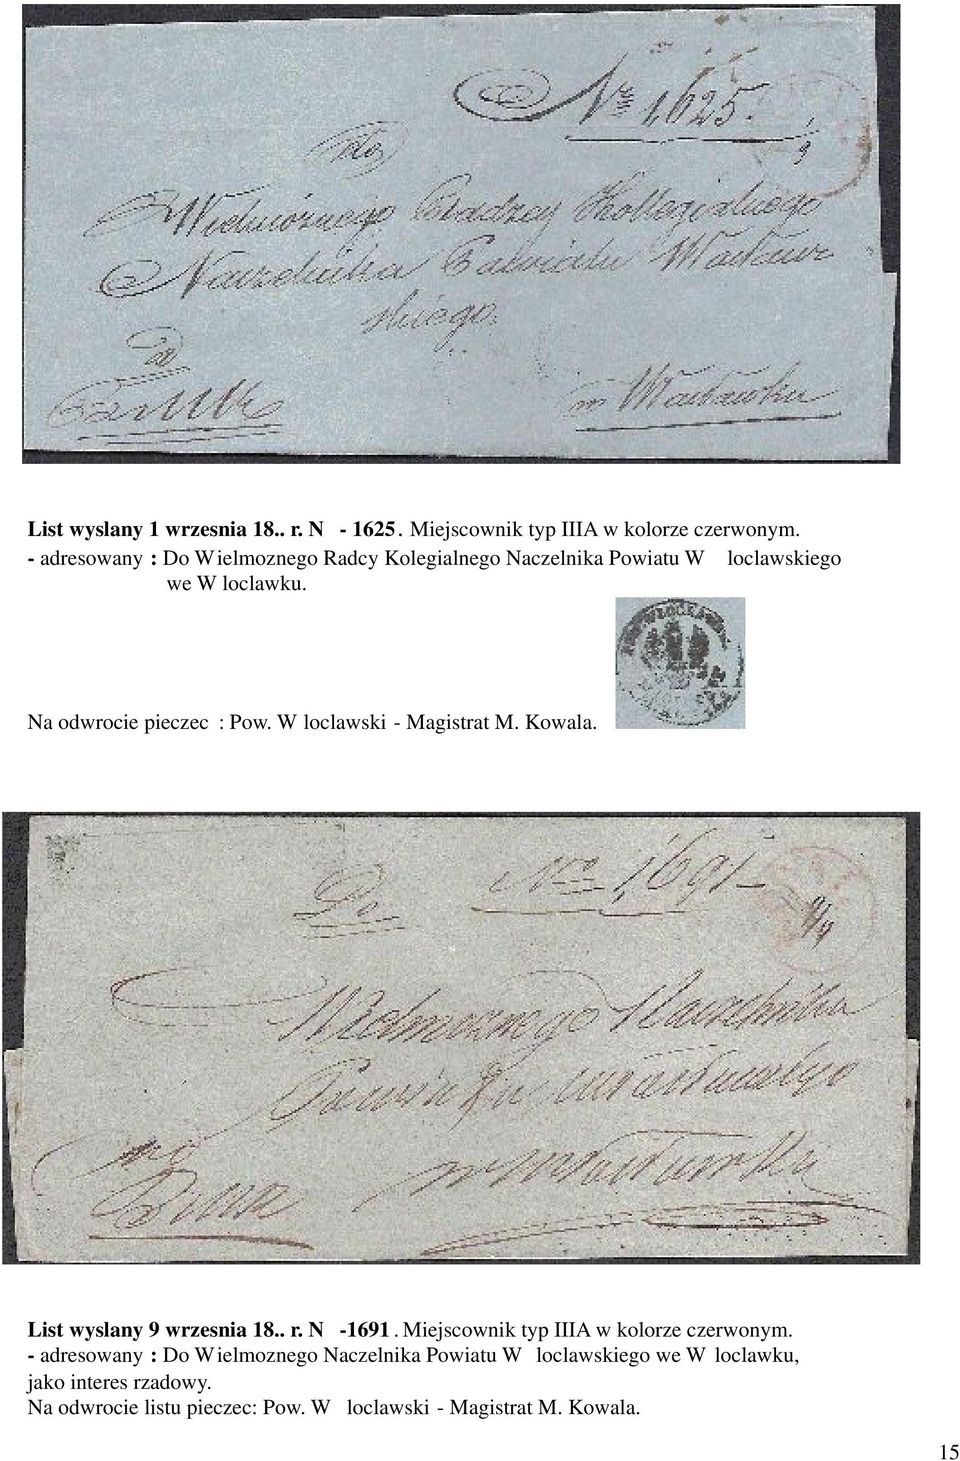 Nr 1,625.
1/9
do
Wielmożnego Radzcy Kollegialnego
Naczelnika Powiatu Włocławs
skiego
w Włocławku
List wyslany 1 wrzesnia 18.. r. N - 1625. Miejscownik typ IIIA w kolorze czerwonym.
- adresowany : Do Wielmoznego Radcy Kolegialnego Naczelnika Powiatu W loclawskiego
we W loclawku.
Na odwrocie pieczec : Pow. W loclawski - Magistrat M. Kowala.
Do
Nro 1,691
9/9
Wielmożnego Naczelnika
Powiatu Włocławskiego
w Włocławku
List wyslany 9 wrzesnia 18.. r. N -1691 . Miejscownik typ IIIA w kolorze czerwonym.
- adresowany : Do Wielmoznego Naczelnika Powiatu W loclawskiego we W loclawku,
jako interes rzadowy.
Na odwrocie listu pieczec: Pow. W loclawski - Magistrat M. Kowala.
15